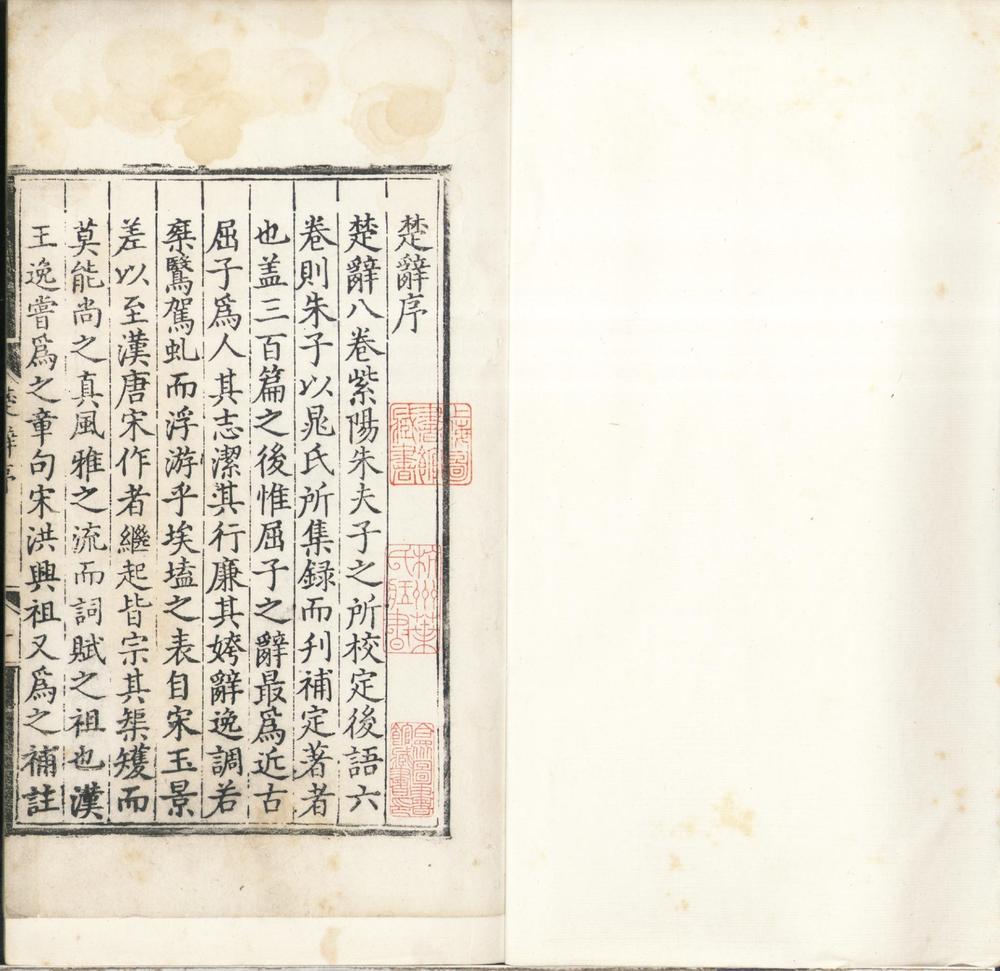 楚辭序
楚辭八卷紫陽朱夫子之所校定後語六
卷則朱子以晁氏所集録而刋補定著者
也盖三百篇之後惟屈子之辭最爲近古
屈子爲人其志潔其行廉其姱辭逸調若
椉鷖駕虬而浮游乎埃壒之表自宋玉景
差以至漢唐宋作者繼起皆宗其榘矱而
莫能尚之真風雅之流而詞賦之祖也漢
王逸嘗爲之章句宋洪興祖又爲之補註
杭州葉氏藏書
合衆圖書館藏書印